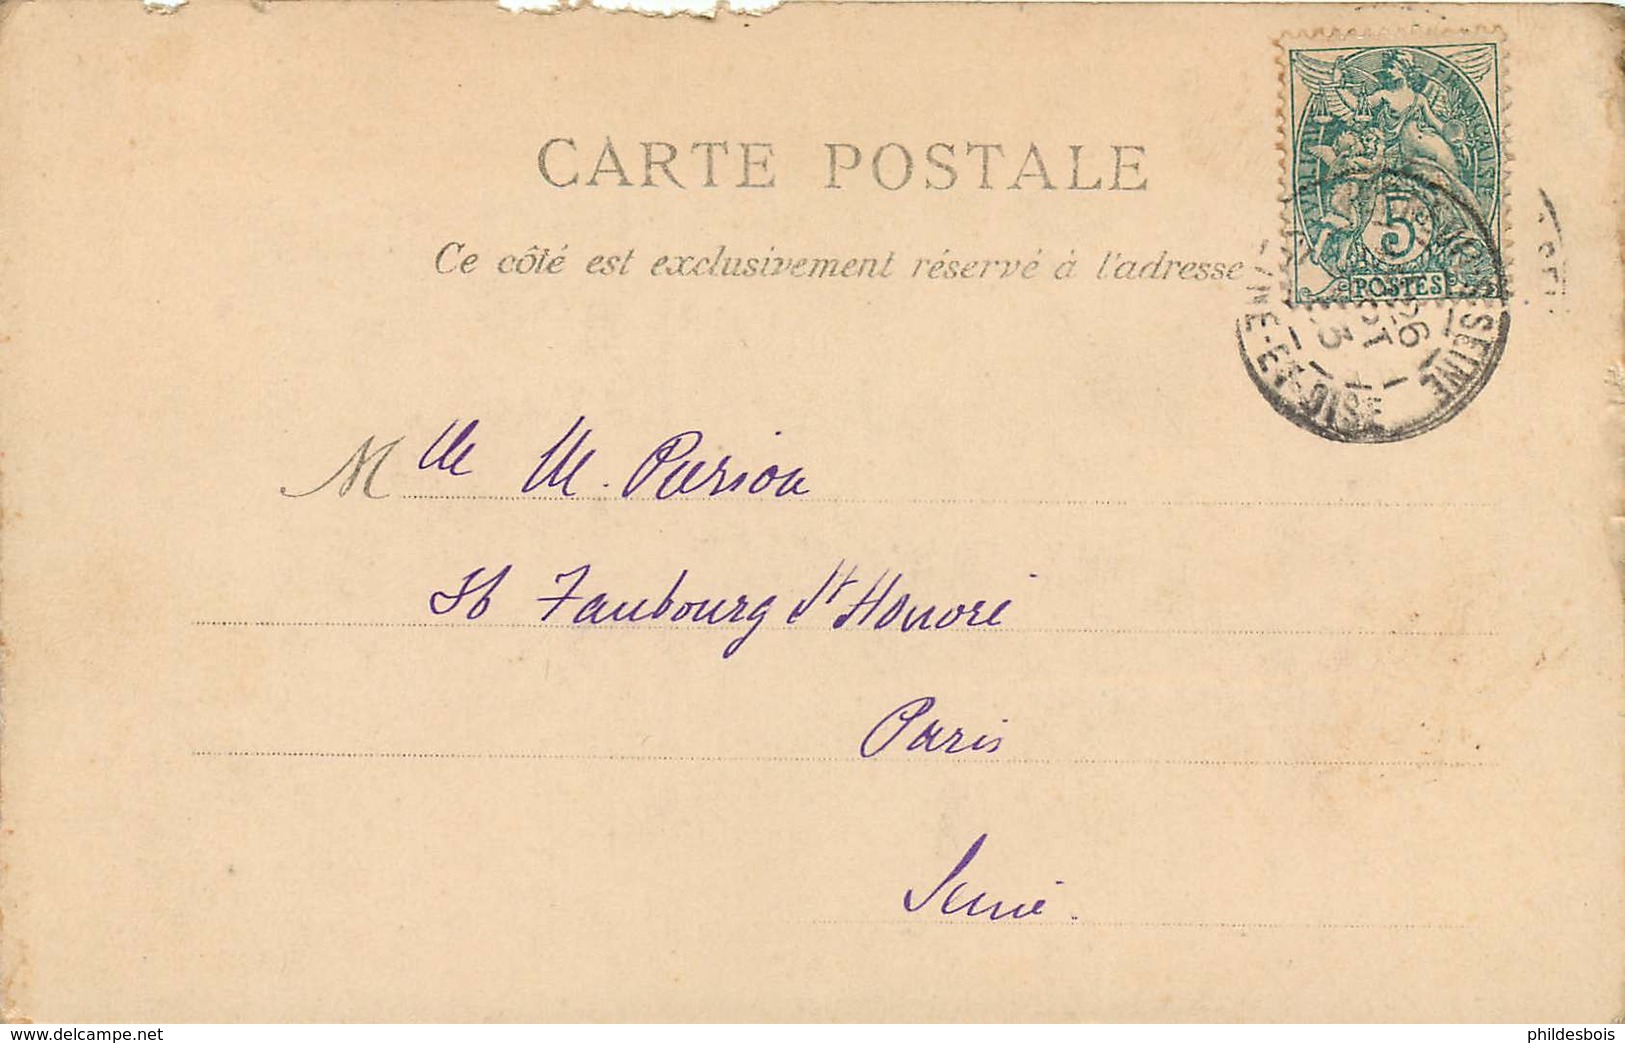 CARTE POSTALE
Ce côté est exclusivement réservé à l'adresse
RÉPUBLIQUE FRANÇAISE
5c
POSTES
SEINE-ET-OISE
26
SEINE
Mlle M. Parion
56 Faubourg St Honoré
Paris
Seine.
delcampe.net
phildesbois